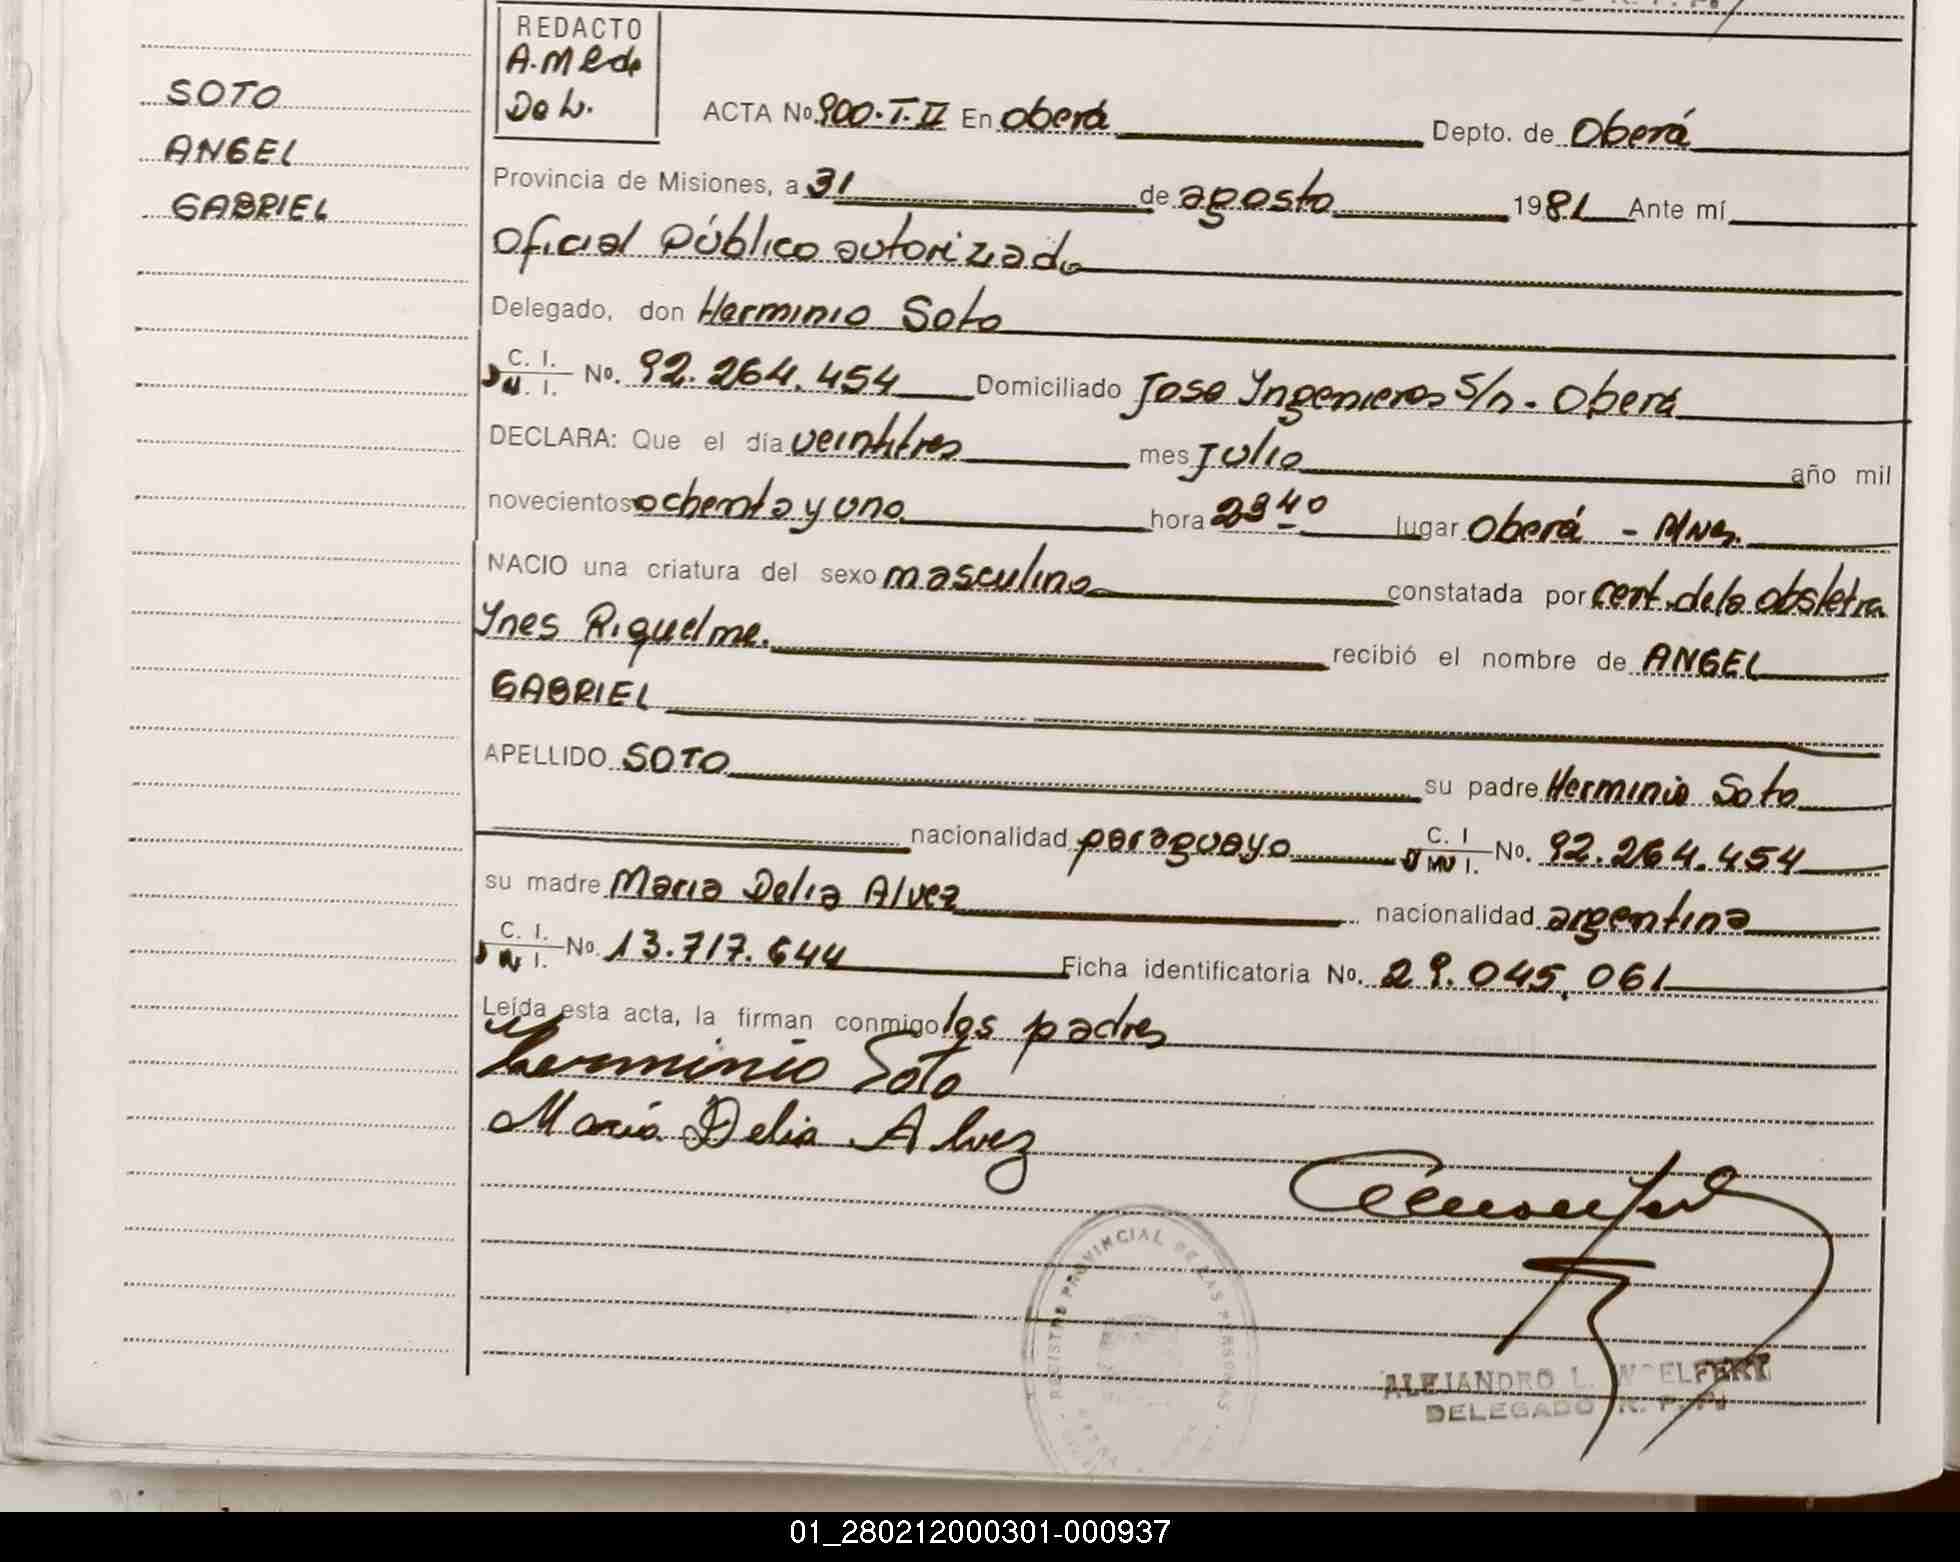 REDACTO
A.M R de
De L.
SOTO
ANGEL
GABRIEL
ACTA No. 900. T. II En Oberá Depto. de Oberá
Provincia de Misiones, a 31 de agosto 1981 Ante mí
Oficial Público autorizado
Delegado, don Herminio Soto
C. I.
D N. I. No. 92.264.454 Domiciliado Jose Ingenieros S/n - Oberá
DECLARA: Que el día veintitres mes Julio año mil
novecientos ochenta y uno hora 23 40 lugar Oberá - Mnes.
NACIO una criatura del sexo masculino constatada por cert. de la obstetra
Ynes Riquelme. recibió el nombre de ANGEL
GABRIEL
APELLIDO SOTO su padre Herminio Soto
nacionalidad paraguayo C. I
D N I. No. 92.264.454
su madre Maria Delia Alvez nacionalidad argentina
C. I.
D N I. No. 13.717.644 Ficha identificatoria No. 29.045.061
Leída esta acta, la firman conmigo los padres
Herminio Soto
María Delia Alvez
REGISTRO PROVINCIAL DE LAS PERSONAS
ALEJANDRO L. WOELFERT
DELEGADO R. P. P.
01_280212000301-000937